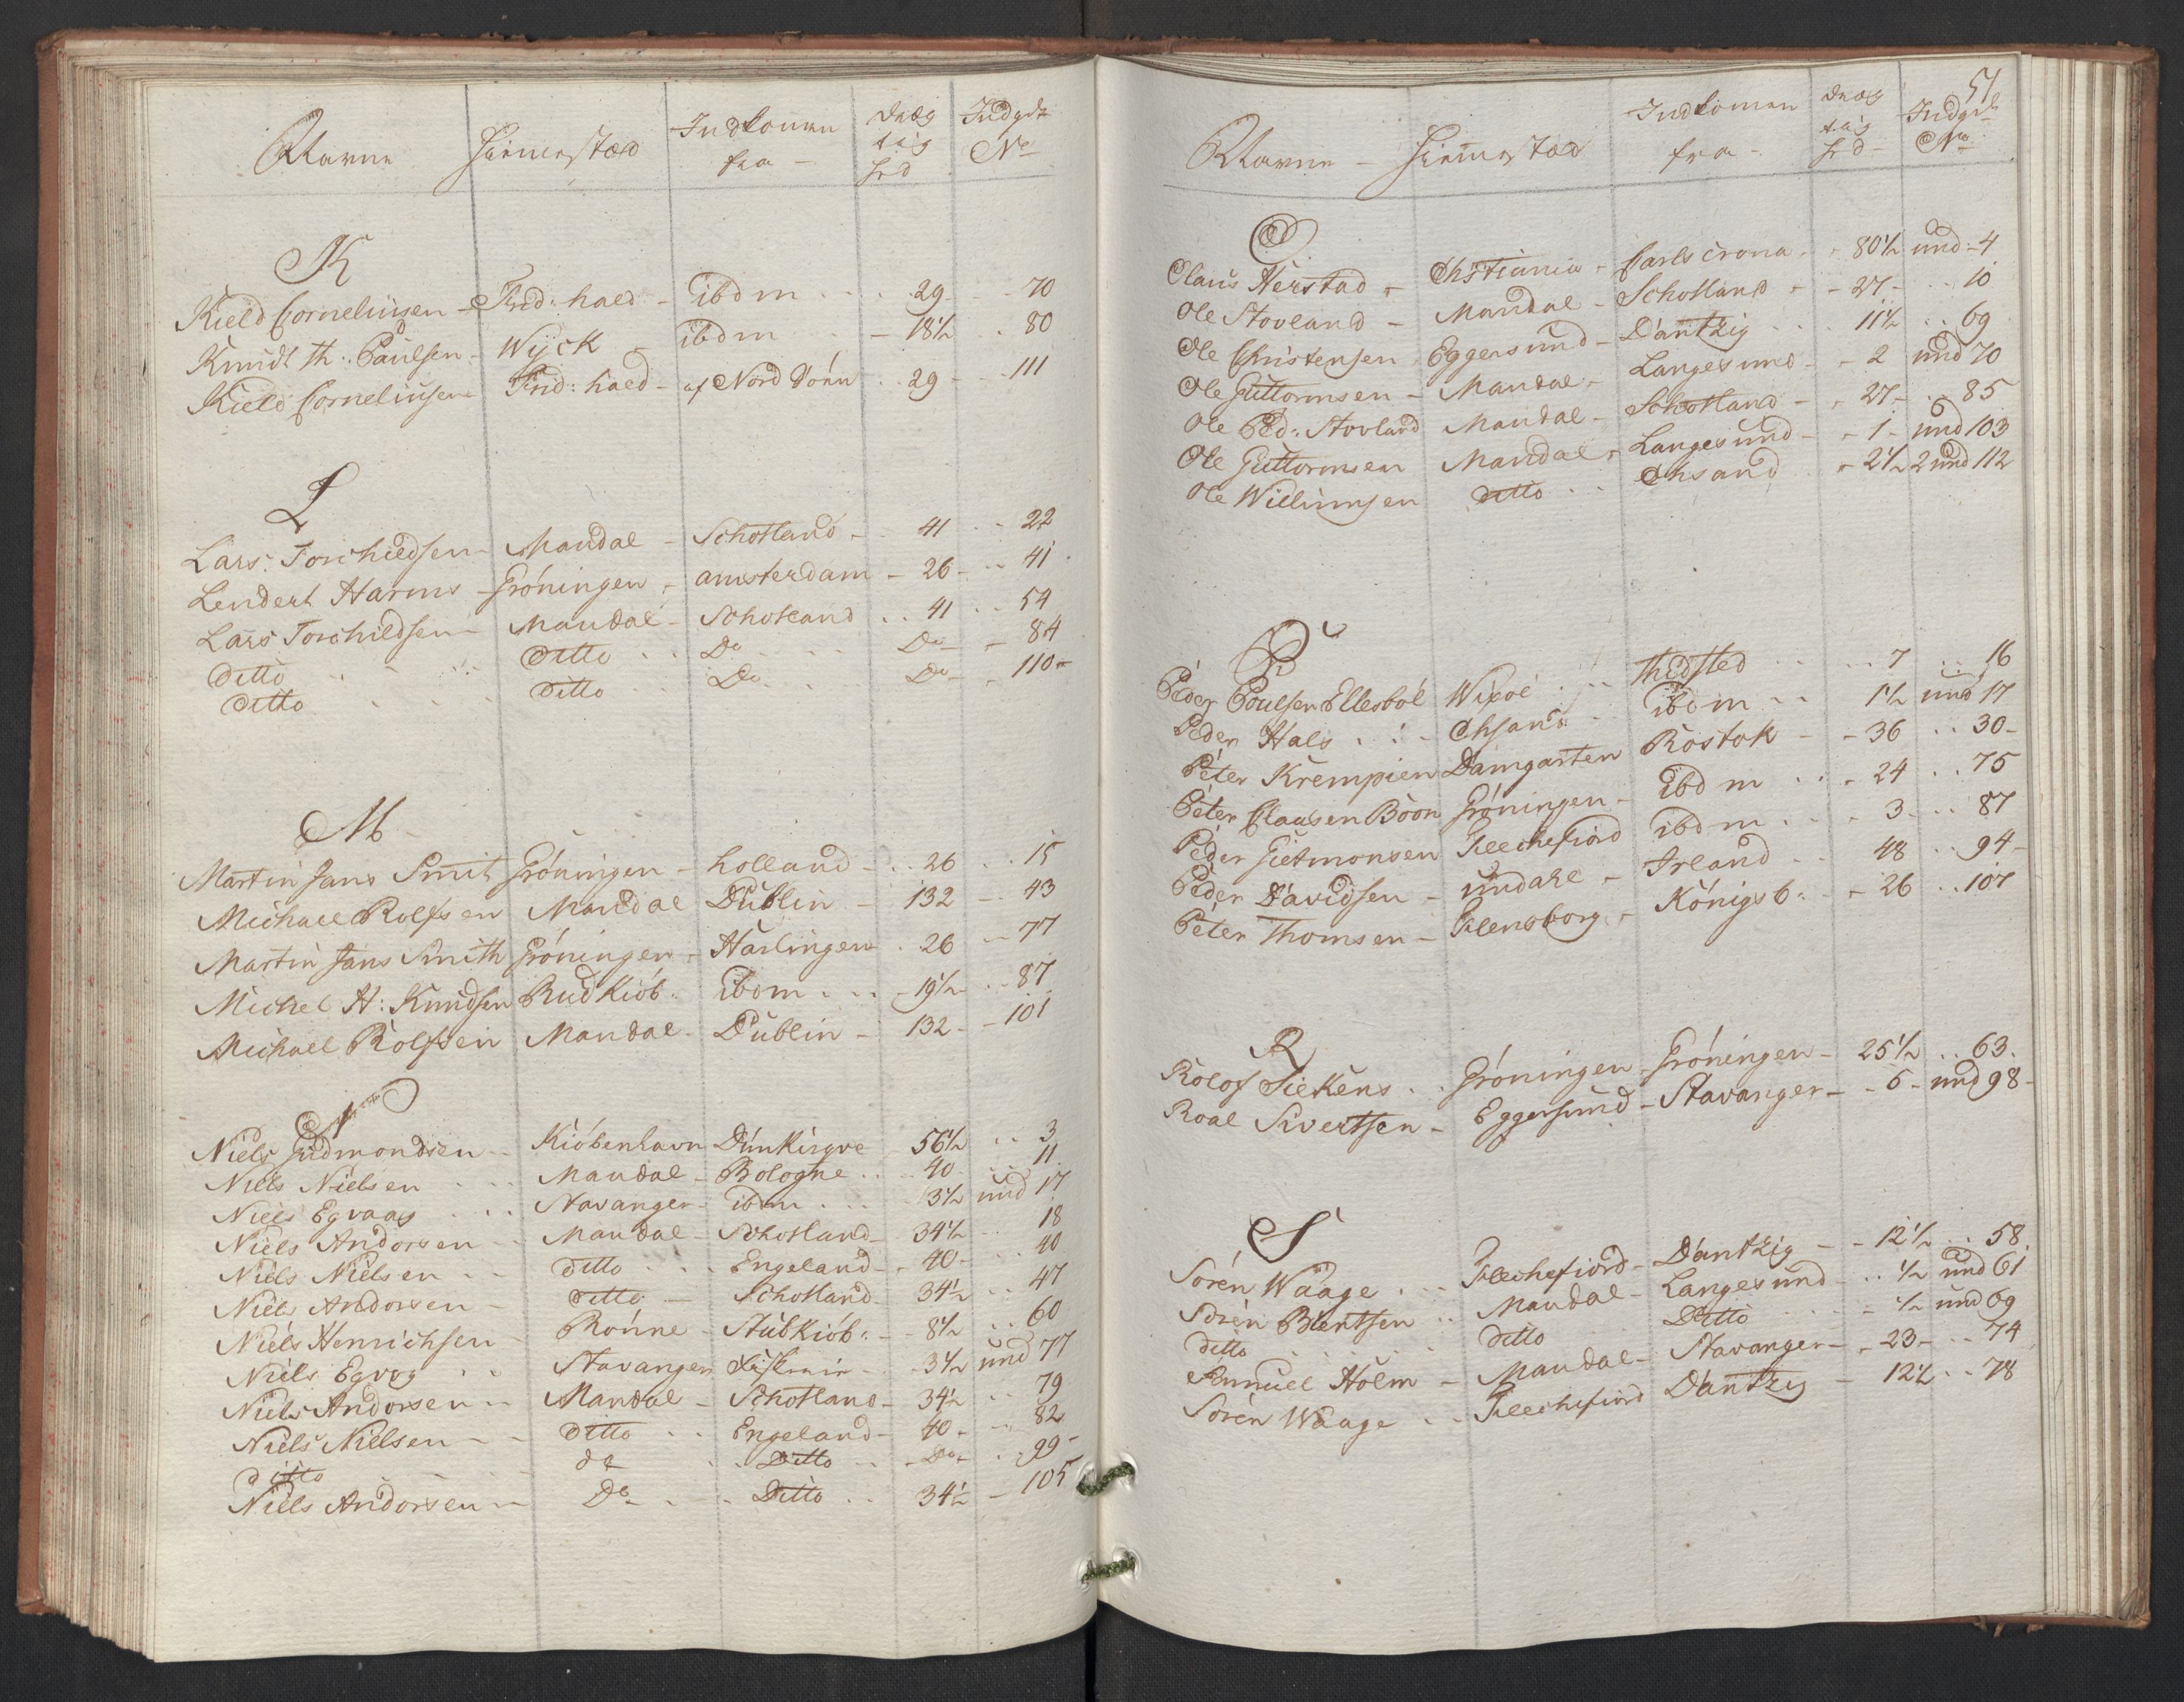 Navne Hiemstæd Indkomen fra – Dræg tig hed Indgde No
K
Kield Corneliusen – Frid: hald – ibdm . . 29 – 70
Knudt Th: Paulsen – Wÿck – ibdm – 18½ . . 80
Kield Corneliusen Frid: hald – af Nord Söen . . 29 – 111
L
Lars Torchildsen – Mandal – Schotland – 41 . . 22
Lendert Harms – Gröningen – amsterdam – 26 – . . 41
Lars Torchildsen – Mandal – Schotland . . 41 . . 54
Ditto . . Ditto . . Do . . Do – – 84
Ditto . . Ditto . . Do . . Do – 110 –
M
Martin Jans Smit Gröningen – holland – . . 26 . . 15
Michael Rolfsen Mandal Dublin – 132 – 43
Martin Jans Smith Gröningen – Harlingen . 26 – 77
Michel H: Knudsen Rudkiöb: ibdm . . . 19½ – . . 87
Michael Rolfsen Mandal – Dublin – 132 – – 101
N
Niels Gudmondsen – Kiöbenhavn Dünkirqve 56½ . . 3
Niels Nielsen . . Mandal – Bologne . . 40 . . 11
Niels Egvaag . . Stavanger – ibdm . . 3½ und 17
Niels Andorsen – Mandal – Schotland – 34½ – 18
Niels Nielsen – – ditto . . Engeland – 40 – . . 40
Niels Andorsen – ditto – Schotland – 34½ . . 47
Niels Henrichsen Rönne – Stubkiöb: – 8½ . . 60
Niels Egvog . . Stavanger – 3½ und 77
Niels Andorsen – Mandal – Schotland – 34½ . . 79
Niels Nielsen – – ditto . . Engeland – 40 – . . 82
ditto do . . Ditto . . – Do – . . 99 –
Niels Andorsen – Do – . . Ditto . . 34½ – 105
51
Navne – Hiemstæd Indkomen fra – Dræg tig hed – Indgde No
O
Olaus Herstad – Chstiania – Carlscrona . – 80½ und – 4
Ole Stovland – Mandal – Schotland – – 27 – . . 10
Ole Christensen Eggersund – Dantzig . . . 11½ . . 69
Ole Guttormsen – Mandal – Langesund – – 2 und 70
Ole Ped: Stovland Mandal – Schotland – – 27 – . . 85
Ole Guttormsen Mandal – Langesund – – 1 – und 103
Ole Willumsen ditto . . Chsand . – 2½ 2 und 112
P
Peder Poulsen Ellesböl Wixöe . . . Thidsted . . . . 7 . . 16
Peder Hals . . – Chsand – ibdm . . 1½ und 17
Peter Krempien Damgarten Rostok – – 36 . . 30 –
Peter Clausen Boon Gröningen – ibdm . . – 24 . . 75
Peder Gietmonsen Flechefiord ibdm . . – 3 – . . 87
Peder Davidsen – undahl – Irland . . 48 . . 94 –
Peter Thomsen – Flensborg – Königsb: – 26 . . 107
R
Rolof Siekens . . Gröningen – Gröningen – 25½ . . 63 .
Roal Sivertsen – Eggersund – Stavanger – – 6 – und 98 –
S
Sören Waage . . Flechefiord – Dantzig – – 12½ . . 58
Sören Berntsen . . Mandal – Langesund – . . ½ und 61
ditto . . . ditto . . Ditto . . – ½ und 69
Samuel Holm – Mandal – Stavanger – – 23 – . . 74
Sören Waage . . Flechefiord Dantzig – 12½ . . 78